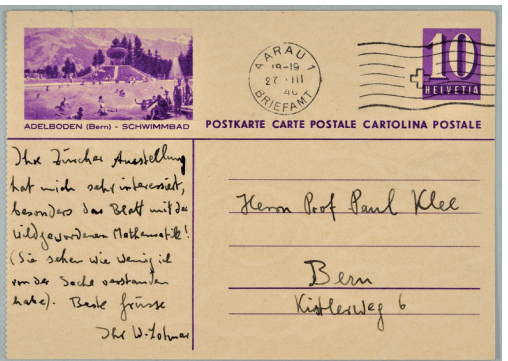 ADELBODEN (Bern) - SCHWIMMBAD
AARAU 1
18-19
27. III
40
BRIEFAMT
10
HELVETIA
POSTKARTE CARTE POSTALE CARTOLINA POSTALE
Ihre Zürcher Ausstellung
hat mich sehr interessiert,
besonders das Blatt mit der
wildgewordenen Mathematik!
(Sie sehen wie wenig ich
von der Sache verstanden
habe). Beste Grüsse
Ihr W. Lotmar
Herrn Prof Paul Klee
Bern
Kistlerweg 6